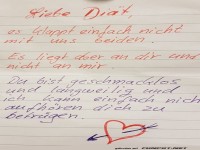 Liebe Diät,
es klappt einfach nicht
mit uns beiden.
Es liegt aber an dir und
nicht an mir.
Du bist geschmacklos
und langweilig und
ich kann einfach nicht
aufhören dich zu
betrügen.